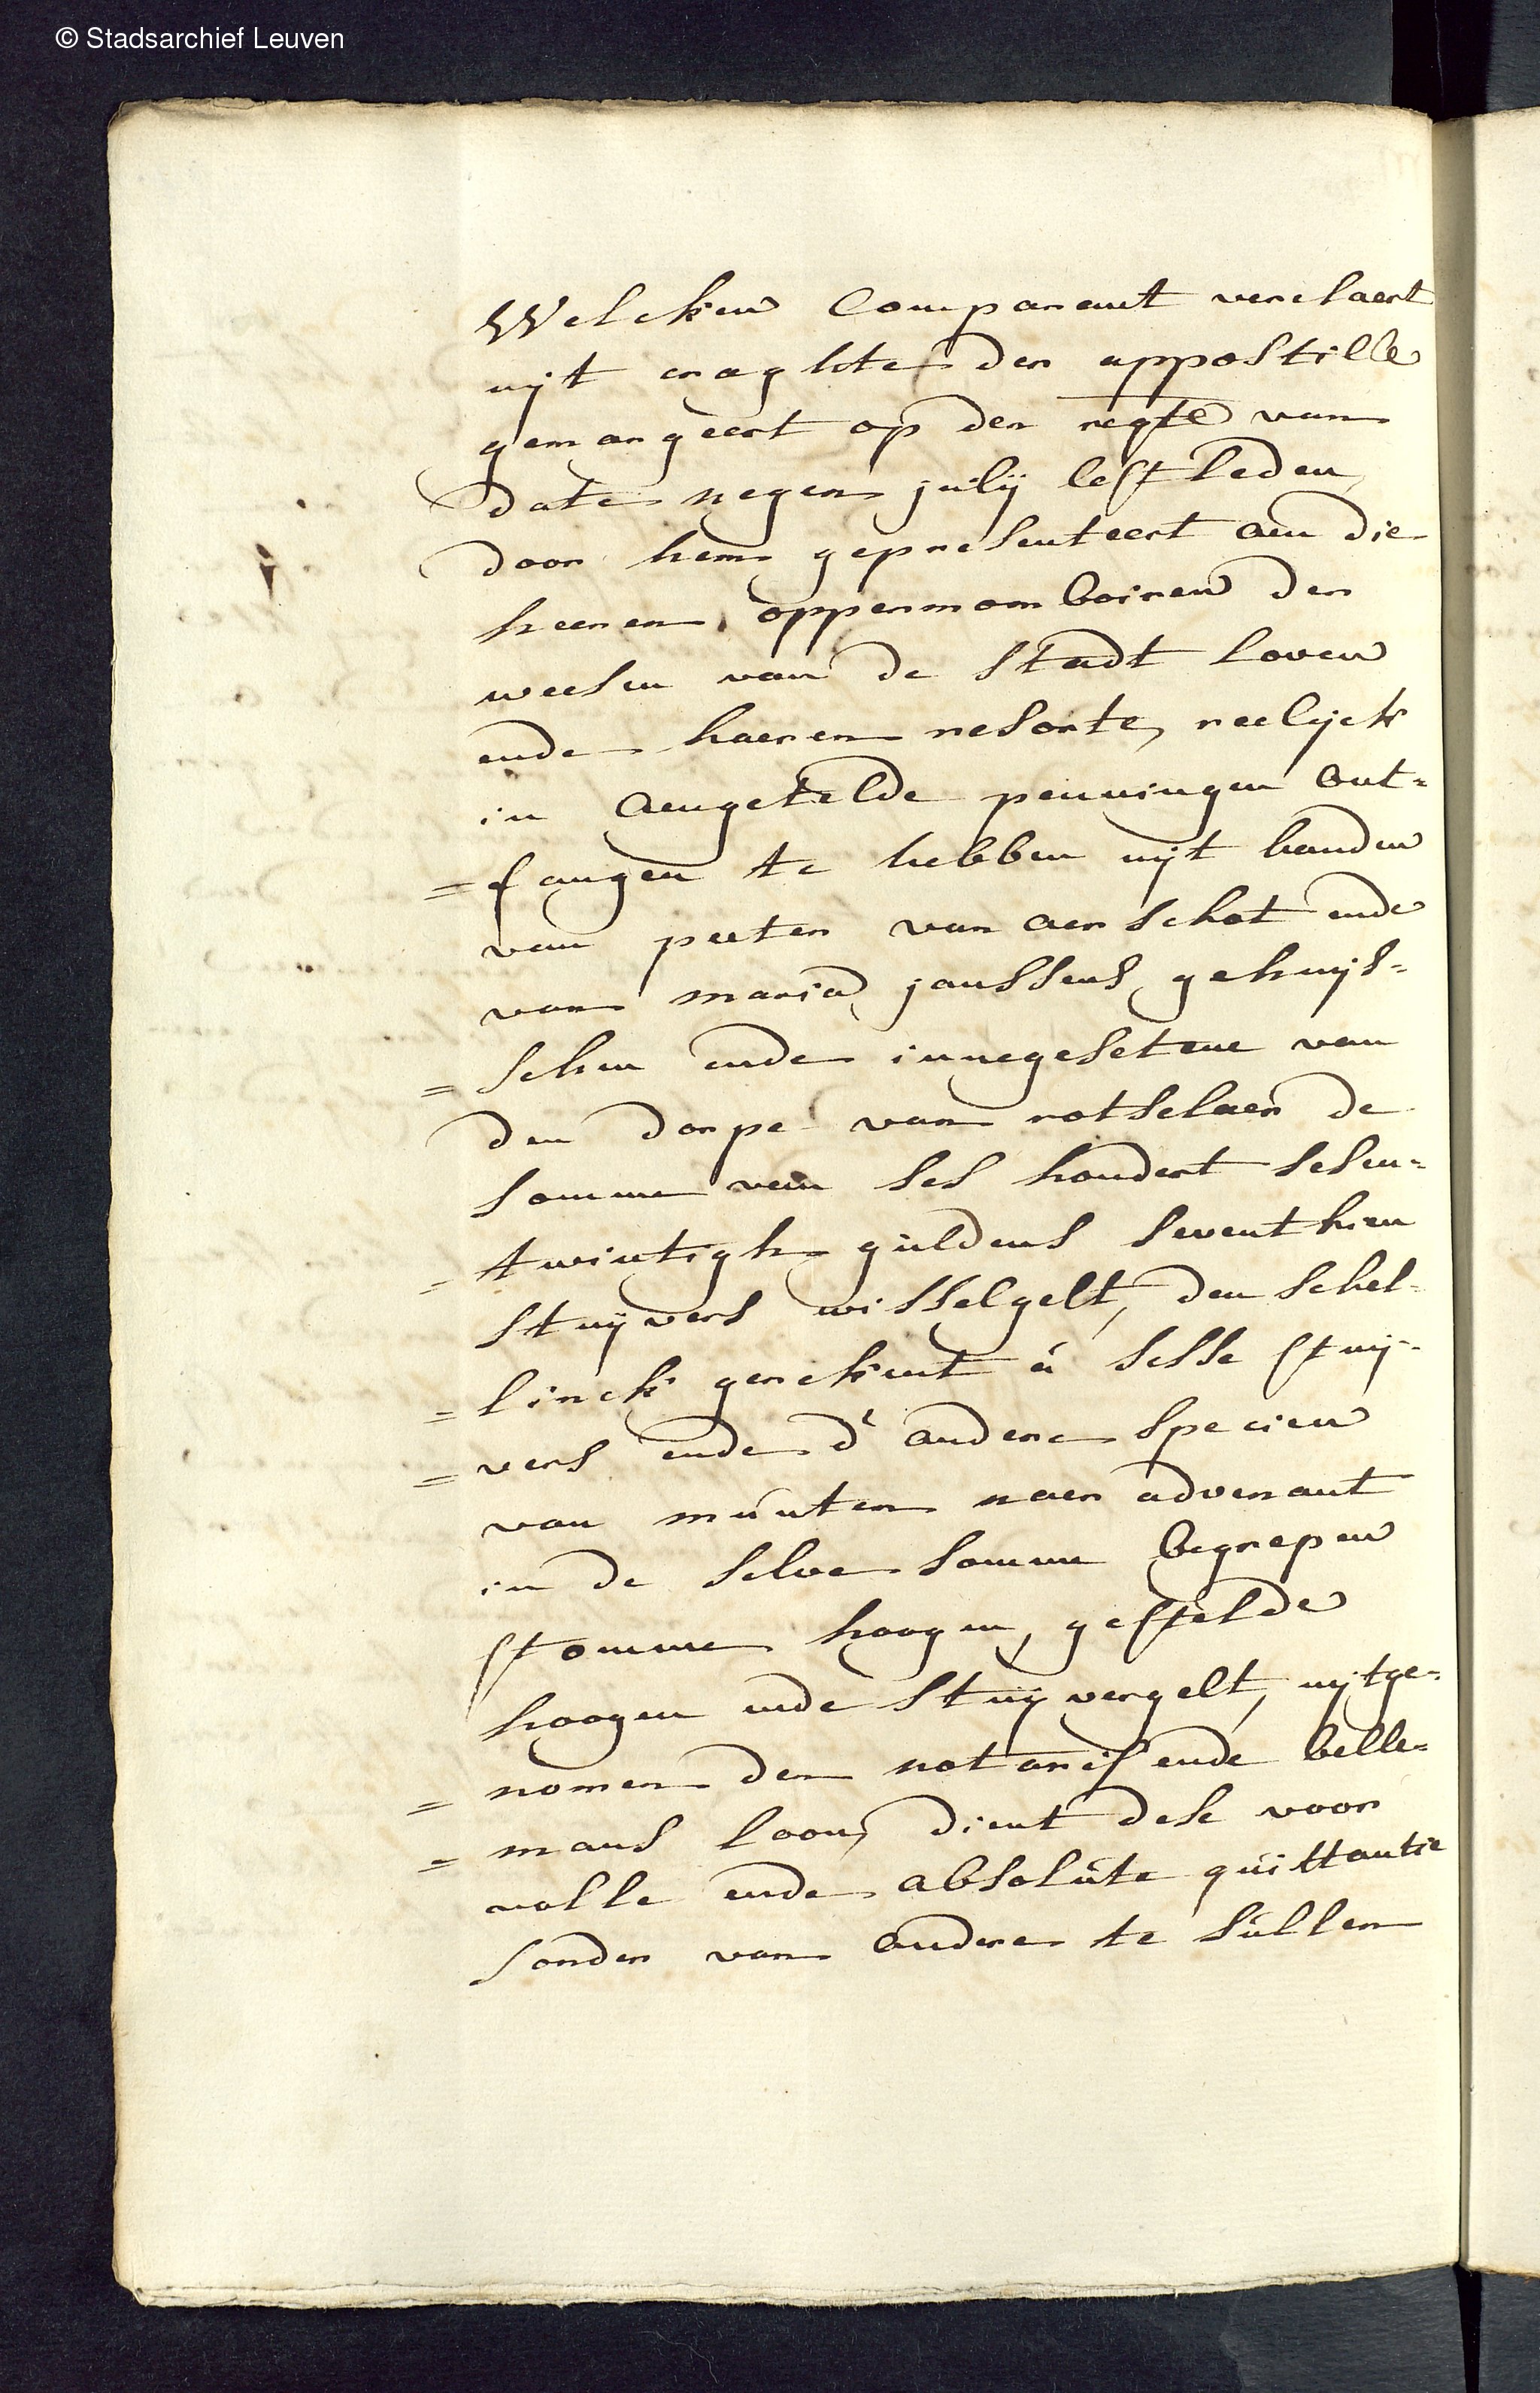 © Stadsarchief Leuven
Welcken Comparant verclaert
uijt craghte der appostille
gemargeert op der reqte van
date negen julij lestleden,
door hem gepresenteert aen die
heeren oppermomboiren der
weesen van de stadt loven
ende haeren resorte, reelijck
in aengetelde penningen ont=
=fangen te hebben uijt handen
van peeter van aerschot ende
van maria janssens gehuijs=
=schen ende innegesetene van
den dorpe van rotselaer de
somme van ses hondert sesen=
=twintigh guldens seventhien
stuijvers wisselgelt, den schel=
=linck gerekent à sesse stuij=
=vers ende d'andere specien
van munten naer advenant
in de selve somme begrepen
stomme hoogen, gestelde
hoogen ende stuijvergelt, uijtge=
=nomen den notaris ende belle=
=mans loon, dient dese voor
volle ende absolute quittantie
sonder van andere te sullen